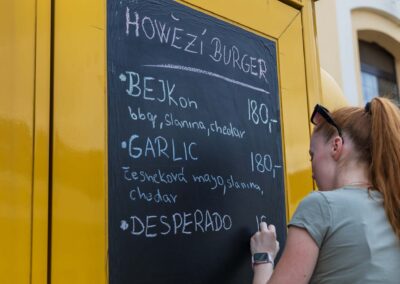 HOWĚZÍ BURGER
BEJKon 180,-
bbq, slanina, chedar
GARLIC 180,-
česneková mayo, slanina,
chedar
DESPERADO 1